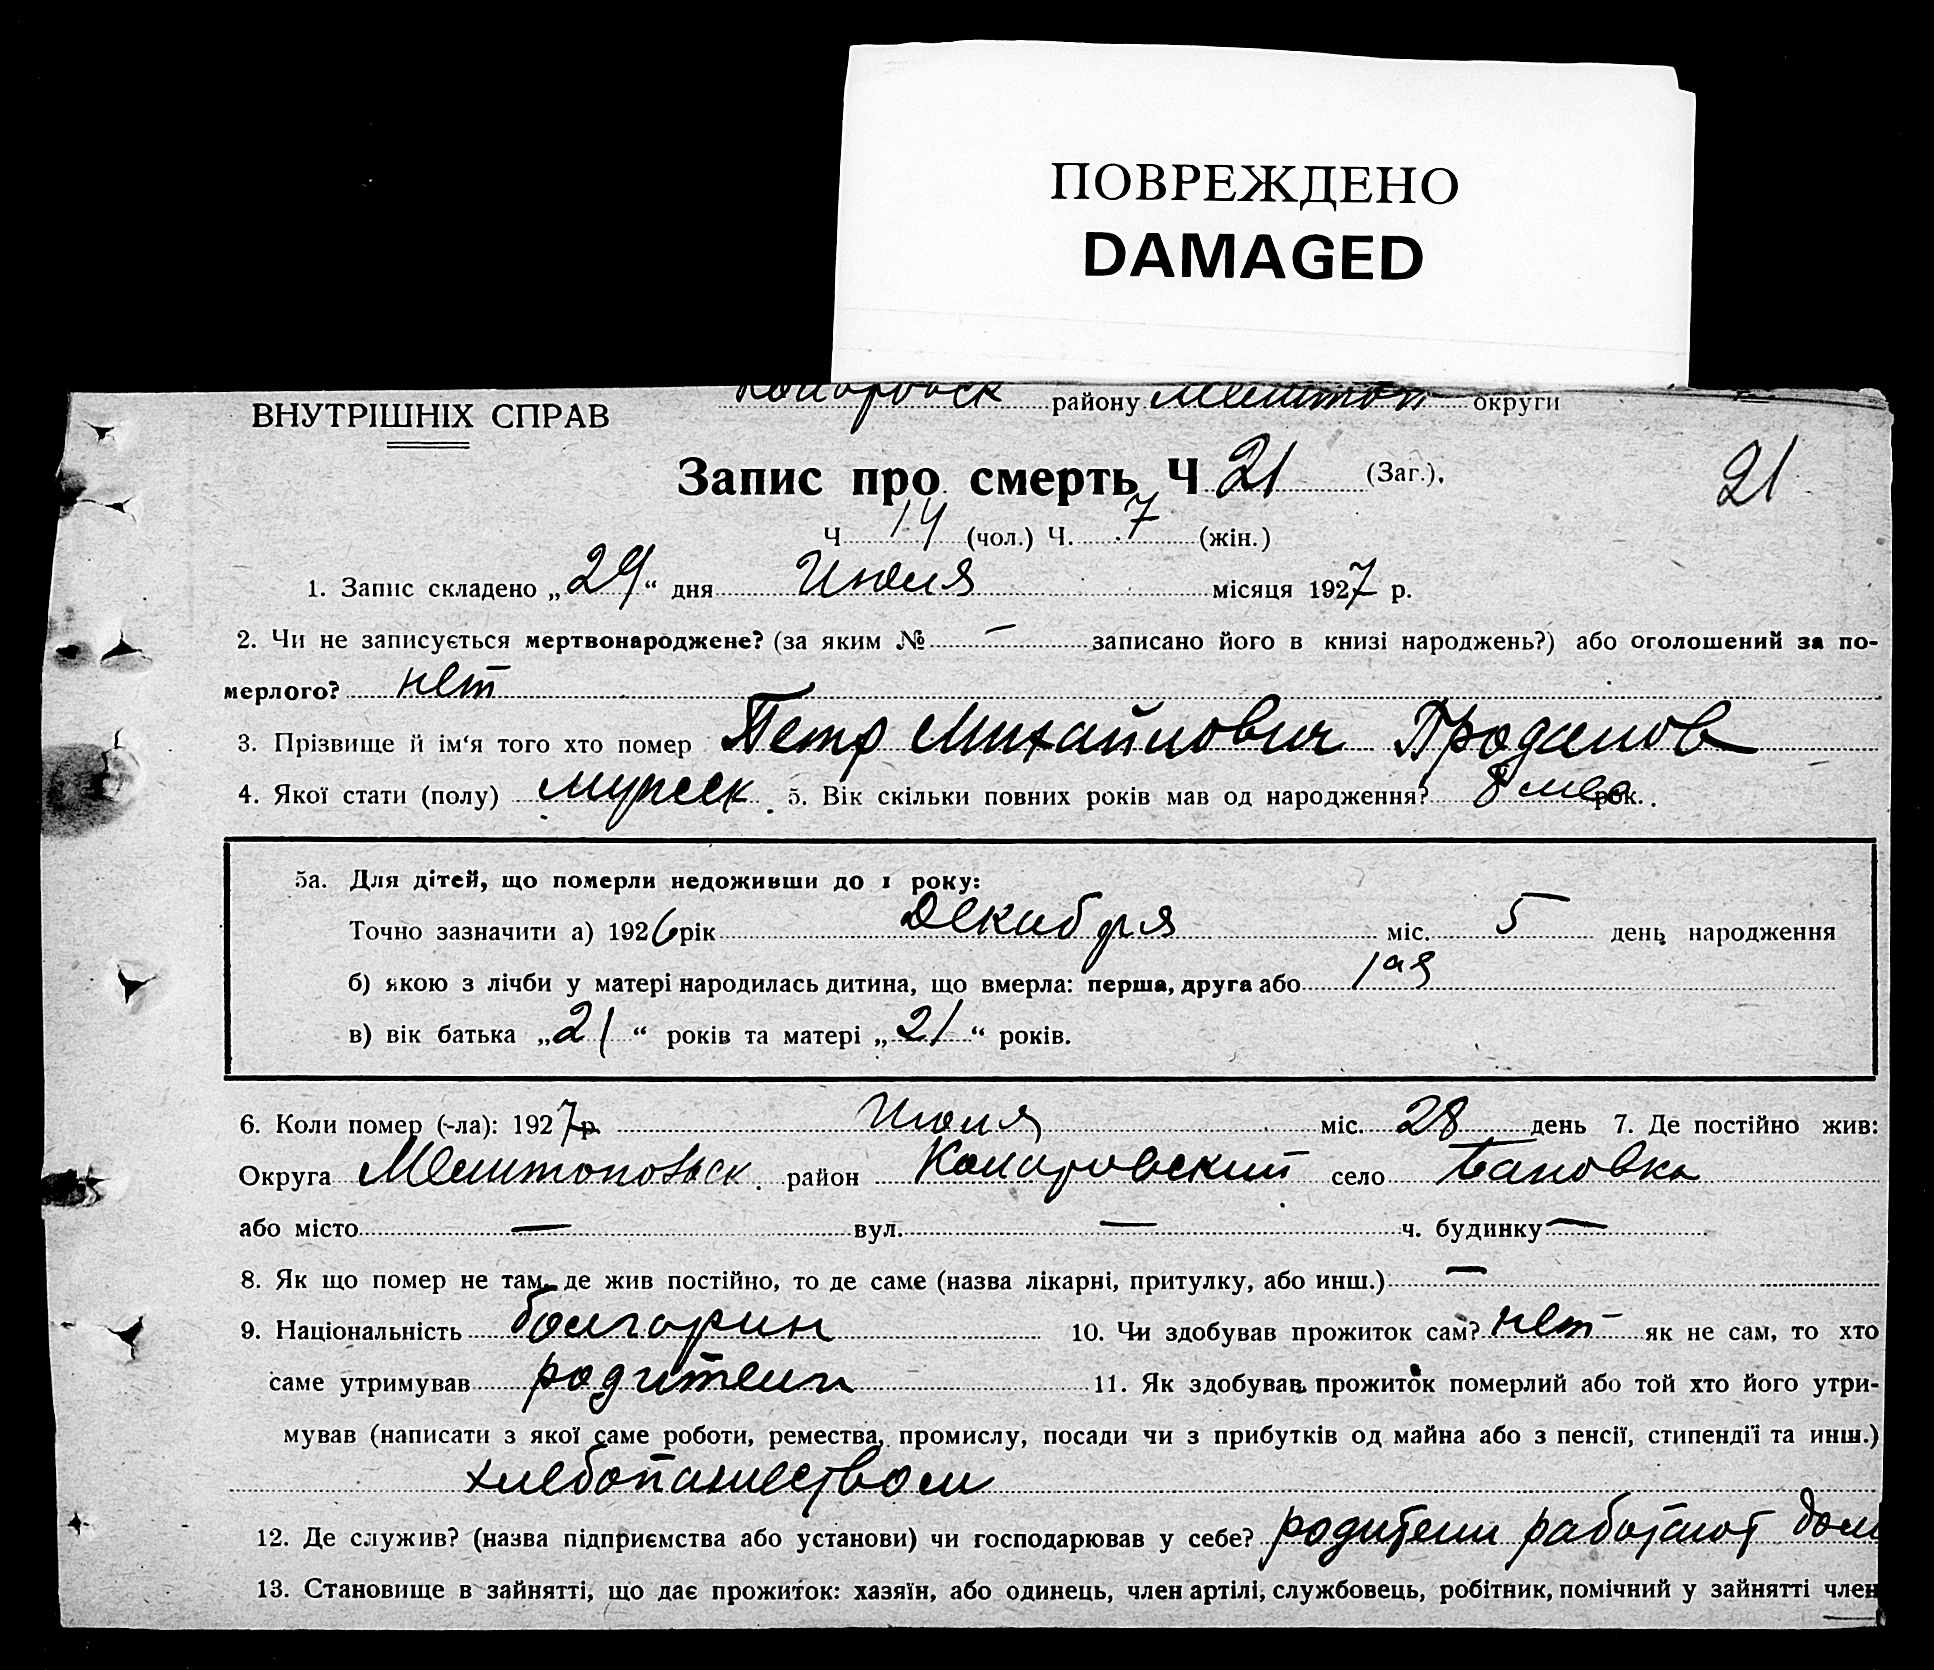 ПОВРЕЖДЕНО
DAMAGED
ВНУТРІШНІХ СПРАВ
району Мелитоп округи
Запис про смерть Ч 21 (Заг.).
21
Ч 14 (чол.) Ч. 7 (жін.)
1. Запис складено „29“ дня Июля місяця 1927 р.
2. Чи не записується мертвонароджене? (за яким № — записано його в книзі народжень?) або оголошений за по-
мерлого? нет
3. Прізвище й ім'я того хто помер Петр Михайлович Проданов
4. Якої стати (полу) мужск. 5. Вік скільки повних років мав од народження? 8 мес рок.
5а. Для дітей, що померли недоживши до 1 року:
Точно зазначити а) 1926 рік Декабря міс. 5 день народження
б) якою з лічби у матері народилась дитина, що вмерла: перша, друга або 1ая
в) вік батька „21“ років та матері „21“ років.
6. Коли помер (-ла): 1927 р. Июля міс. 28 день 7. Де постійно жив:
Округа Мелитопольск. район село Бановка
або місто — вул. — ч. будинку —
8. Як що помер не там, де жив постійно, то де саме (назва лікарні, притулку, або инш.) —
9. Національність болгарин 10. Чи здобував прожиток сам? нет як не сам, то хто
саме утримував родители 11. Як здобував прожиток померлий або той хто його утри-
мував (написати з якої саме роботи, ремества, промислу, посади чи з прибутків од майна або з пенсії, стипендії та инш.)
хлебопашеством
12. Де служив? (назва підприємства або установи) чи господарював у себе? родители работают дом
13. Становище в зайнятті, що дає прожиток: хазяїн, або одинець, член артілі, службовець, робітник, помічний у зайнятті член